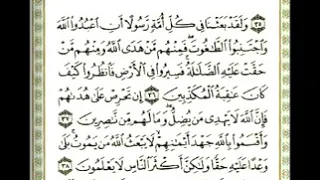 ٣٥ وَلَقَدْ بَعَثْنَا فِى كُلِّ أُمَّةٍ رَّسُولًا أَنِ ٱعْبُدُوا۟ ٱللَّهَ
وَٱجْتَنِبُوا۟ ٱلطَّٰغُوتَ ۖ فَمِنْهُم مَّنْ هَدَى ٱللَّهُ وَمِنْهُم مَّنْ
حَقَّتْ عَلَيْهِ ٱلضَّلَٰلَةُ ۚ فَسِيرُوا۟ فِى ٱلْأَرْضِ فَٱنظُرُوا۟ كَيْفَ
كَانَ عَٰقِبَةُ ٱلْمُكَذِّبِينَ ٣٦ إِن تَحْرِصْ عَلَىٰ هُدَىٰهُمْ
فَإِنَّ ٱللَّهَ لَا يَهْدِى مَن يُضِلُّ ۖ وَمَا لَهُم مِّن نَّٰصِرِينَ ٣٧
وَأَقْسَمُوا۟ بِٱللَّهِ جَهْدَ أَيْمَٰنِهِمْ ۙ لَا يَبْعَثُ ٱللَّهُ مَن يَمُوتُ ۚ بَلَىٰ
وَعْدًا عَلَيْهِ حَقًّا وَلَٰكِنَّ أَكْثَرَ ٱلنَّاسِ لَا يَعْلَمُونَ ٣٨